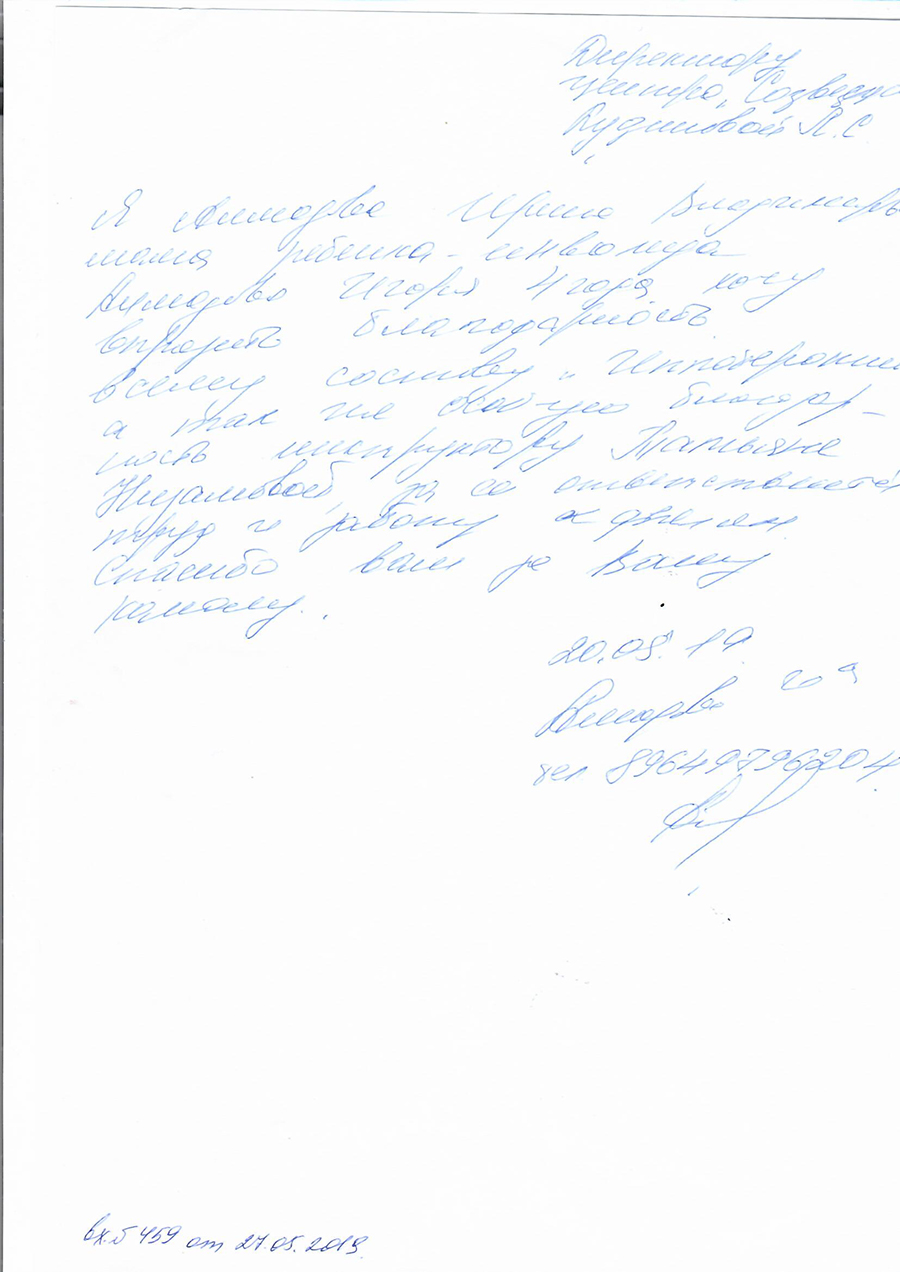 Директору
центра „Созвезд
Кудиновой Л.С
Я Ахмедова Ирина Владимиров
мама ребенка-инвалида
Игоря 4 года хочу
вырозить благодарность
всему составу „Иппотерапии
а так же особую благодар-
ность инструктору Татьяне
Низамовой, за ее ответственный
труд и работу с детьми
Спасибо вам за Вашу
20.05.19
тел 89649796204
вх.№ 459 от 27.05.2019